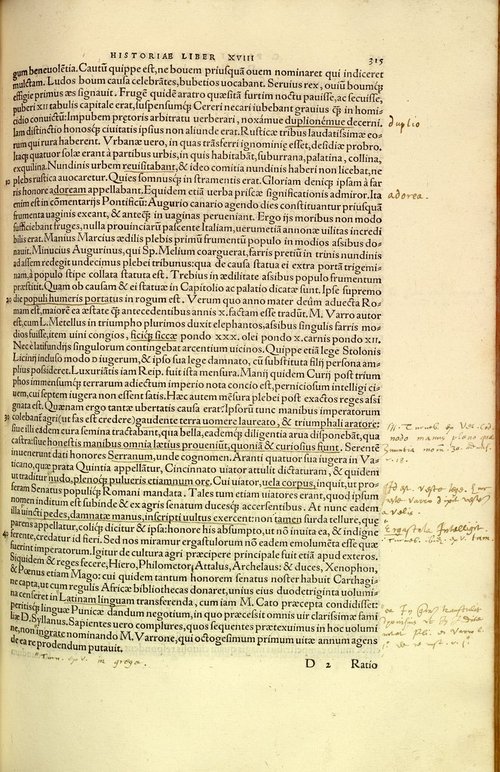 HISTORIAE LIBER XVIII 315
gum beneuolẽtia. Cautũ quippe est, ne bouem priusquã ouem nominaret qui indiceret
mulctam. Ludos boum causa celebrãtes, bubetios uocabant. Seruius rex, ouiũ boumq́;
effigie primus æs signauit. Frugẽ quidẽ aratro quæsitã furtim noctu pauisse, ac secuisse,
puberi XII tabulis capitale erat, suspensumq́; Cereri necari iubebant grauius q̃ in homi-
cidio conuictũ: Impubem prætoris arbitratu uerberari, noxámue duplionémue decerni.
Iam distinctio honosq́; ciuitatis ipsius non aliunde erat. Rusticæ tribus laudatissimæ eo-
rum qui rura haberent. Vrbanæ uero, in quas trãsferri ignominię esset, desidiæ probro.
Itaq; quatuor solæ erant à partibus urbis, in quis habitabãt, suburrana, palatina, collina,
exquilina. Nundinis urbem reuisitabant, & ideo comitia nundinis haberi non licebat, ne
plebs rustica auocaretur. Quies somnusq́; in stramentis erat. Gloriam deniq; ipsam à far
ris honore adoream appellabant. Equidem etiã uerba priscæ significationis admiror. Ita
enim est in cõmentarijs Pontificũ: Augurio canario agendo dies constituantur priusquã
frumenta uaginis exeant, & anteq̃ in uaginas perueniant. Ergo ijs moribus non modo
sufficiebant fruges, nulla prouinciarũ pascente Italiam, uerumetiã annonæ uilitas incredi
bilis erat. Manius Marcius ædilis plebis primũ frumentũ populo in modios assibus do-
nauit. Minucius Augurinus, qui Sp. Melium coarguerat, farris pretiũ in trinis nundinis
ad assem redegit undecimus plebei tribunus: qua de causa statua ei extra portã trigemi-
nam, à populo stipe collata statuta est. Trebius in ædilitate assibus populo frumentum
præstitit. Quam ob causam & ei statuæ in Capitolio ac palatio dicatæ sunt. Ipse supremo
die populi humeris portatus in rogum est. Verum quo anno mater deũm aduecta Ro-
mam est, maiorẽ ea æstate q̃ antecedentibus annis X. factam esse tradũt. M. Varro autor
est, cum L. Metellus in triumpho plurimos duxit elephantos, assibus singulis farris mo-
dios fuisse, item uini congios, ficiq́; siccæ pondo XXX. olei pondo X. carnis pondo XII.
Nec è latifundijs singulorum contingebat arcentium uicinos. Quippe etiã lege Stolonis
Licinij incluso modo D iugerum, & ipso sua lege damnato, cũ substituta filij persona am-
plius possideret. Luxuriãtis iam Reip. fuit ista mensura. Manij quidem Curij post triũm
phos immensumq́; terrarum adiectum imperio nota concio est, perniciosum intelligi ci-
uem, cui septem iugera non essent satis. Hæc autem mẽsura plebei post exactos reges assi
gnata est. Quænam ergo tantæ ubertatis causa erat? Ipsorũ tunc manibus imperatorum
colebanť agri (ut fas est credere) gaudente terra uomere laureato, & triumphali aratore:
siue illi eadem cura semina tractabant, qua bella, eademq́; diligentia arua disponebãt, qua
castra: siue honestis manibus omnia lætius proueniũt, quoniã & curiosius fiunt. Serentẽ
inuenerunt dati honores Serranum, unde cognomen. Aranti quatuor sua iugera in Va-
ticano, quæ prata Quintia appellãtur, Cincinnato uiator attulit dictaturam, & quidem
ut traditur nudo, plenoq́; pulueris etiamnum ore. Cui uiator, uela corpus, inquit, ut pro-
feram Senatus populiq́; Romani mandata. Tales tum etiam uiatores erant, quod ipsum
nomen inditum est subinde & ex agris senatum ducesq́; accersentibus. At nunc eadem
illa uincti pedes, damnatæ manus, inscripti uultus exercent: non tamen surda tellure, quæ
parens appellatur, coliq́; dicitur & ipsa: honore his absumpto, ut nõ inuita ea, & indigne
ferente, credatur id fieri. Sed nos miramur ergastulorum nõ eadem emolumẽta esse quæ
fuerint imperatorum. Igitur de cultura agri præcipere principale fuit etiã apud exteros.
Siquidem & reges fecere, Hiero, Philometor, Attalus, Archelaus: & duces, Xenophon,
& Pœnus etiam Mago: cui quidem tantum honorem senatus noster habuit Carthagi-
ne capta, ut cum regulis Africæ bibliothecas donaret, unius eius duodetriginta uolumi-
na censeret in Latinam linguam transferenda, cum iam M. Cato præcepta condidisset:
peritisq́; linguæ Punicæ dandum negotium, in quo præcessit omnis uir clarissimæ fami
liæ D. Syllanus. Sapientes uero complures, quos sequentes prætexuimus in hoc uolumi
ne, non ingrate nominando M. Varronem, qui octogesimum primum uitæ annum agens
de ea re prodendum putauit.
D 2 Ratio
duplio
adorea.